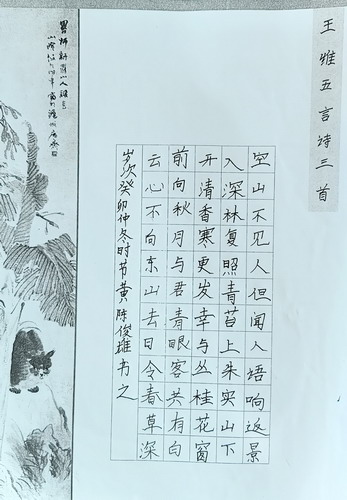 王维五言诗三首
空山不见人但闻人语响返景
入深林复照青苔上朱实山下
开清香寒更发幸与丛桂花窗
前向秋月与君青眼客共有白
云心不向东山去日令春草深
岁次癸卯仲冬时节黄陈俊雄书之